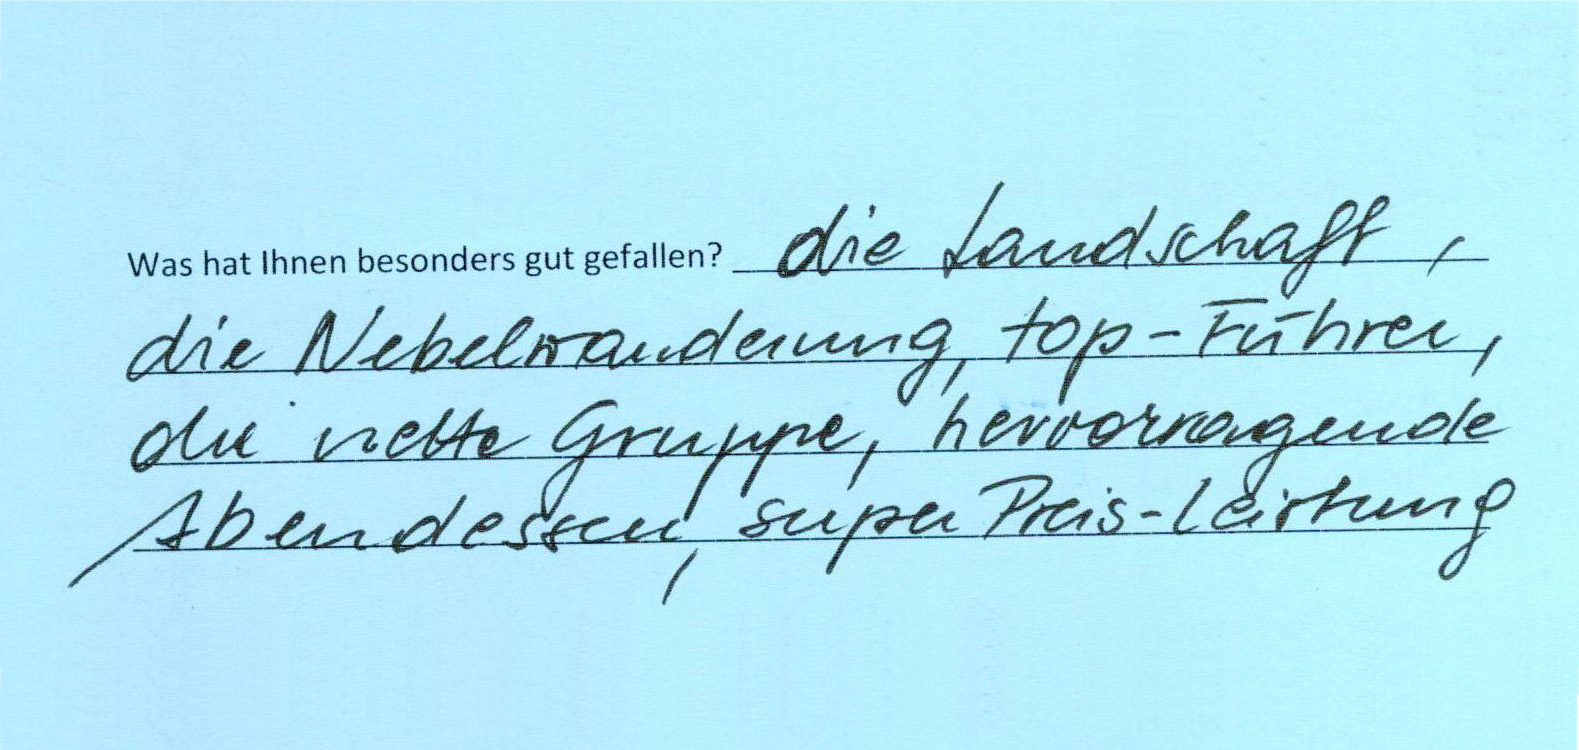 Was hat Ihnen besonders gut gefallen? die Landschaft,
die Nebelwanderung, top-Führer,
die nette Gruppe, hervorragende
Abendessen, super Preis-Leistung